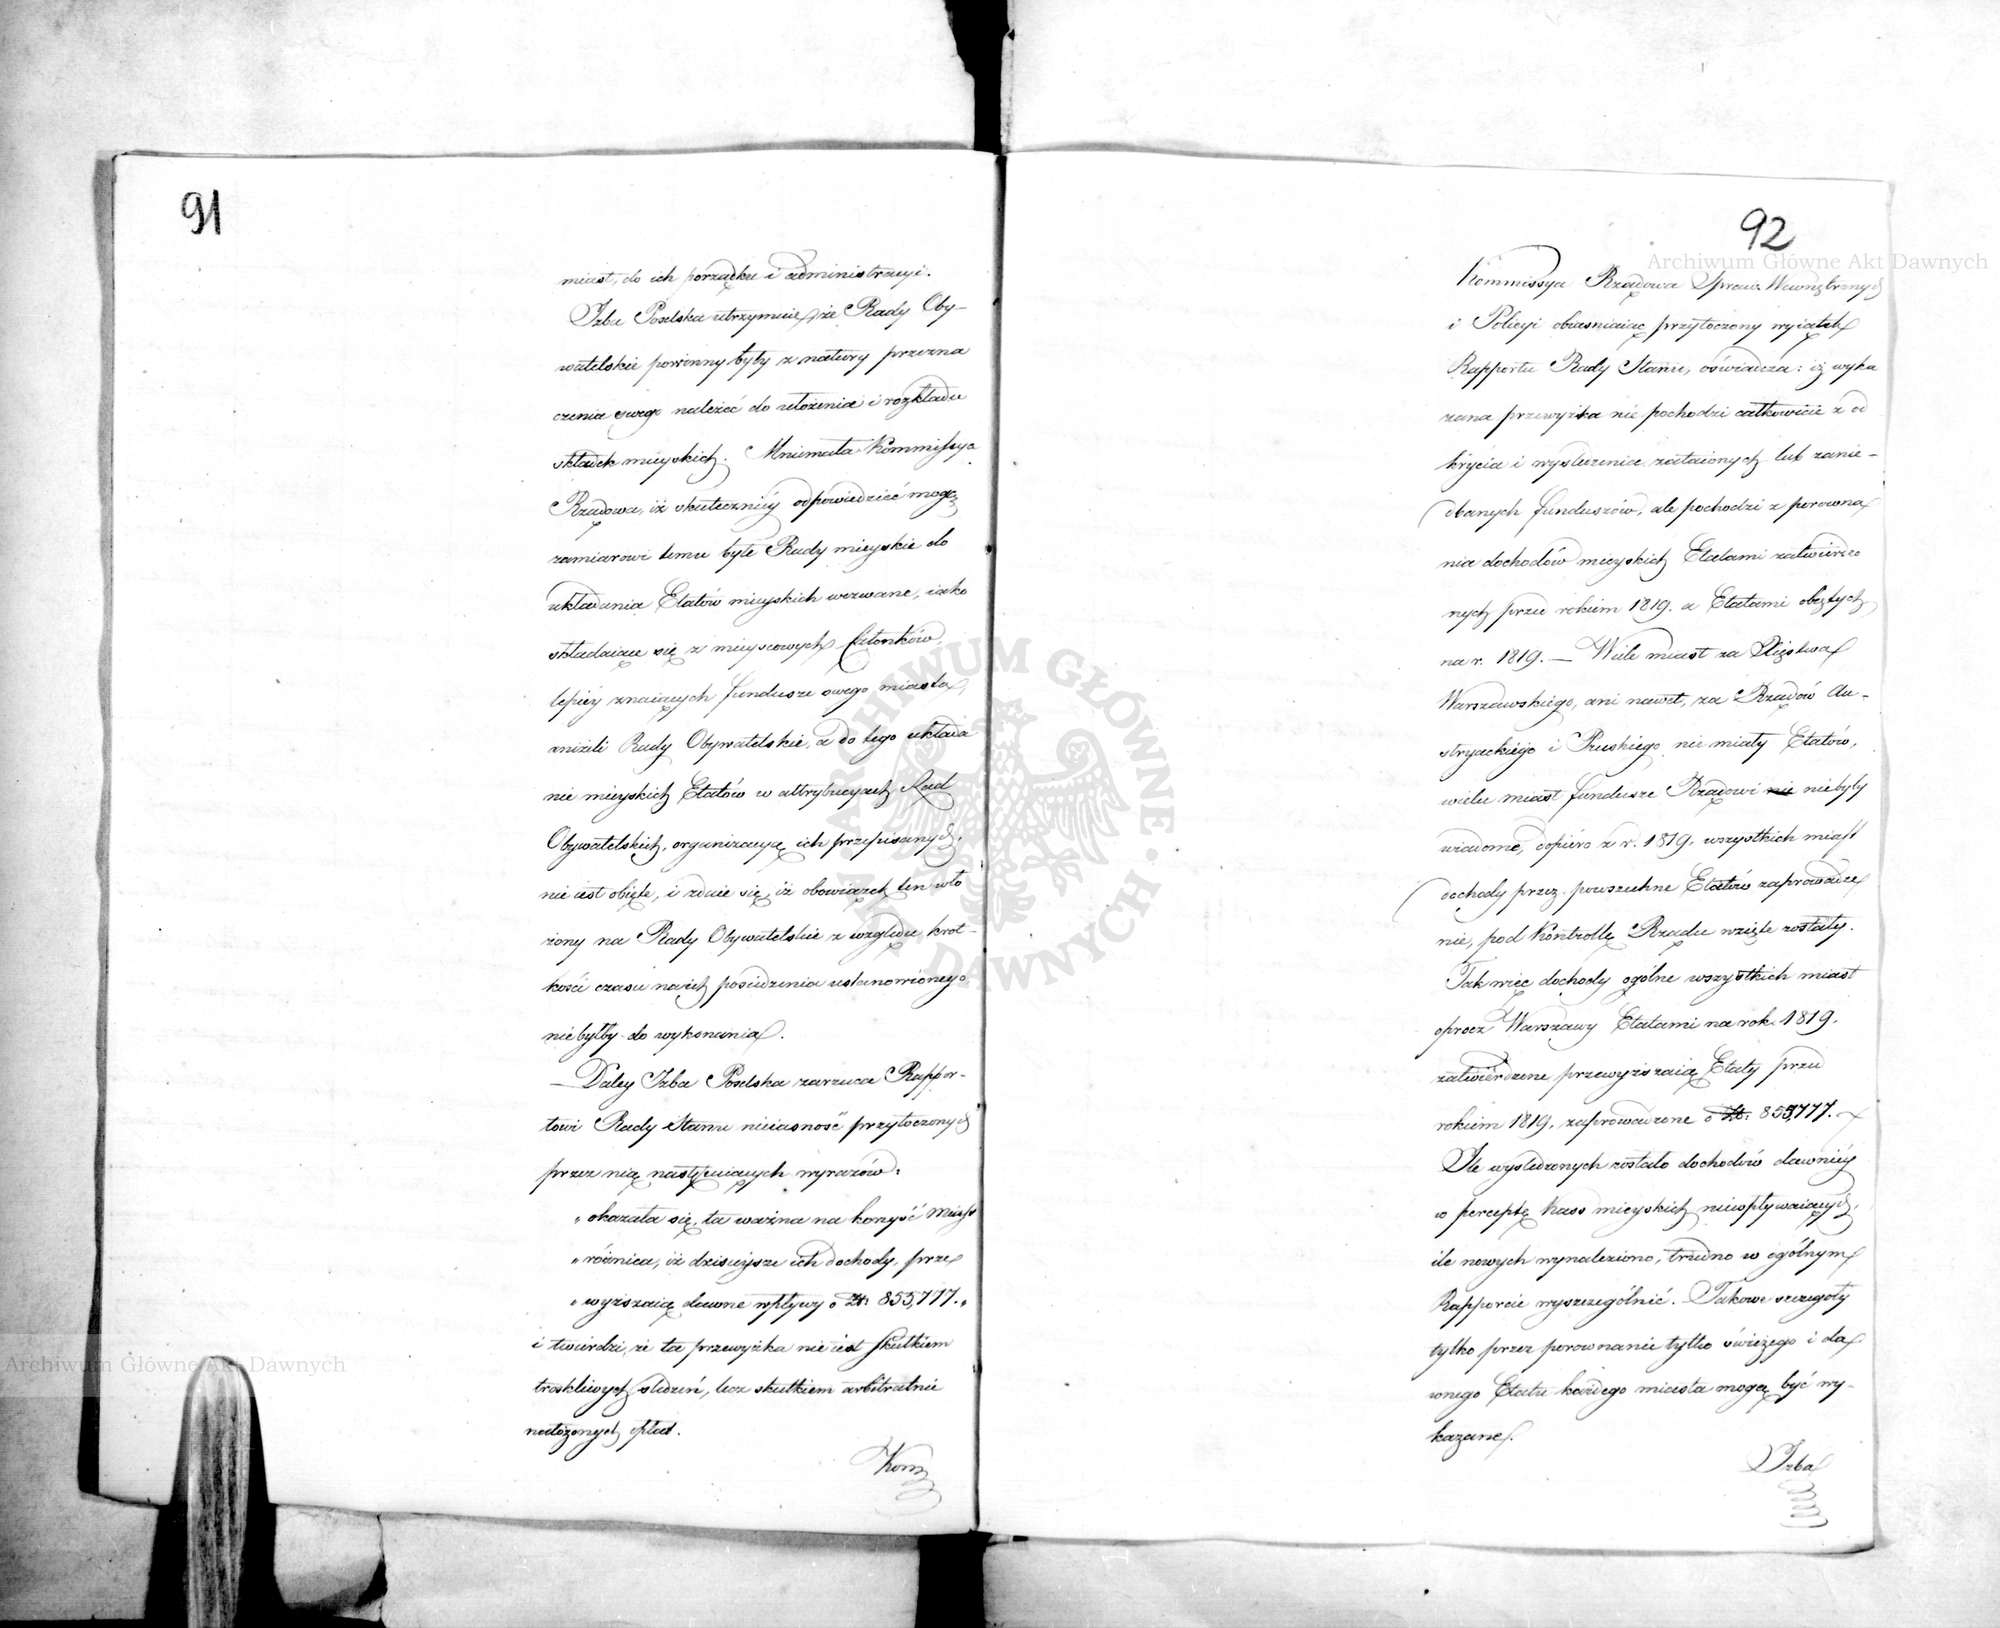 91
miast, do ich porządku i administracyi.
Izba Poselska utrzymuie, że Rady Oby-
watelskie powinny były z natury przezna
czenia swego należeć do ułożenia i rozkładu
składek mieyskich. Mniemała Kommissya
Rządowa, iż skuteczniéy odpowiedzieć mogą
zamiarowi temu byłe Rady mieyskie do
układania Etatów mieyskich wezwane, iako
składaiące się z mieyscowych Członków,
lepiéy znaiących fundusze swego miasta,
aniżeli Rady Obywatelskie, a do tego układa
nie mieyskich Etatów w attrybucyach Rad
Obywatelskich, organizacyą ich przepisanych,
nie iest obięte, i zdaie się, iż obowiązek ten wło
żony na Rady Obywatelskie z względu krót-
kości czasu na ich posiedzenia ustanowionego,
niebyłby do wykonania.
— Daley Izba Poselska zarzuca Rappor-
towi Rady Stanu nieiasność przytoczonych
przez nią następuiących wyrazów:
„ okazała się, ta ważna na korzyść Miast
„ różnica, iż dzisieysze ich dochody, prze
„ wyższaią dawne wpływy o Zł: 855,777.„
i twierdzi, że ta przewyżka nie iest skutkiem
troskliwych śledzeń, lecz skutkiem arbitralnie
nałożonych opłat.
Kom
92
Kommissya Rządowa Spraw Wewnętrznych
i Policyi obiasniaiąc przytoczony wyiątek
Rapportu Rady Stanu, oświadcza: iż wyka
zana przewyżka nie pochodzi całkowicie z od
krycia i wyśledzenia zataionych lub zanie-
dbanych funduszów, ale pochodzi z porowna
nia dochodów mieyskich Etatami zatwierdzo
nych przed rokiem 1819. a Etatami obiętych
na r. 1819. — Wiele miast za Xięstwa
Warszawskiego, ani nawet, za Rządów Au-
stryackiego i Pruskiego nie miały Etatów,
wielu miast fundusze Rządowi nie niebyły
wiadome, dopiéro z r. 1819. wszystkich miast
dochody przez powszechne Etatów zaprowadze
nie, pod Kontrollę Rządu wzięte zostały.
Tak więc dochody ogólne wszystkich miast
oprocz Warszawy Etatami na rok 1819.
zatwierdzone przewyższaią Etaty przed
rokiem 1819. zaprowadzone o Zł: 855,777.
Ile wyśledzonych zostało dochodów dawniéy
w perceptę kass mieyskich niewpływaiących,
ile nowych wynaleziono, trudno w ogólnym
Rapporcie wyszczególnić. Takowe szczegoły
tylko przez porownanie tylko świeżego i da
wnego Etatu każdego miasta mogą być wy-
kazane.
Izba
Archiwum Główne Akt Dawnych
Archiwum Główne Akt Dawnych
ARCHIWUM GŁÓWNE AKT DAWNYCH